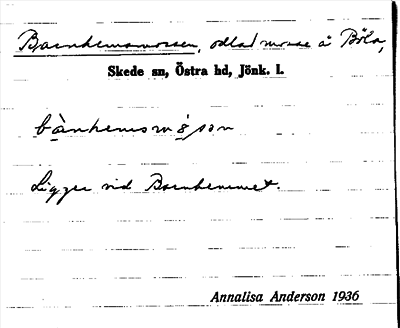 Barnhemsmossen, odlad mosse å Böla,
Skede sn, Östra hd, Jönk. l.
bànhemsmósən
Ligger vid Barnhemmet.
Annalisa Anderson 1936